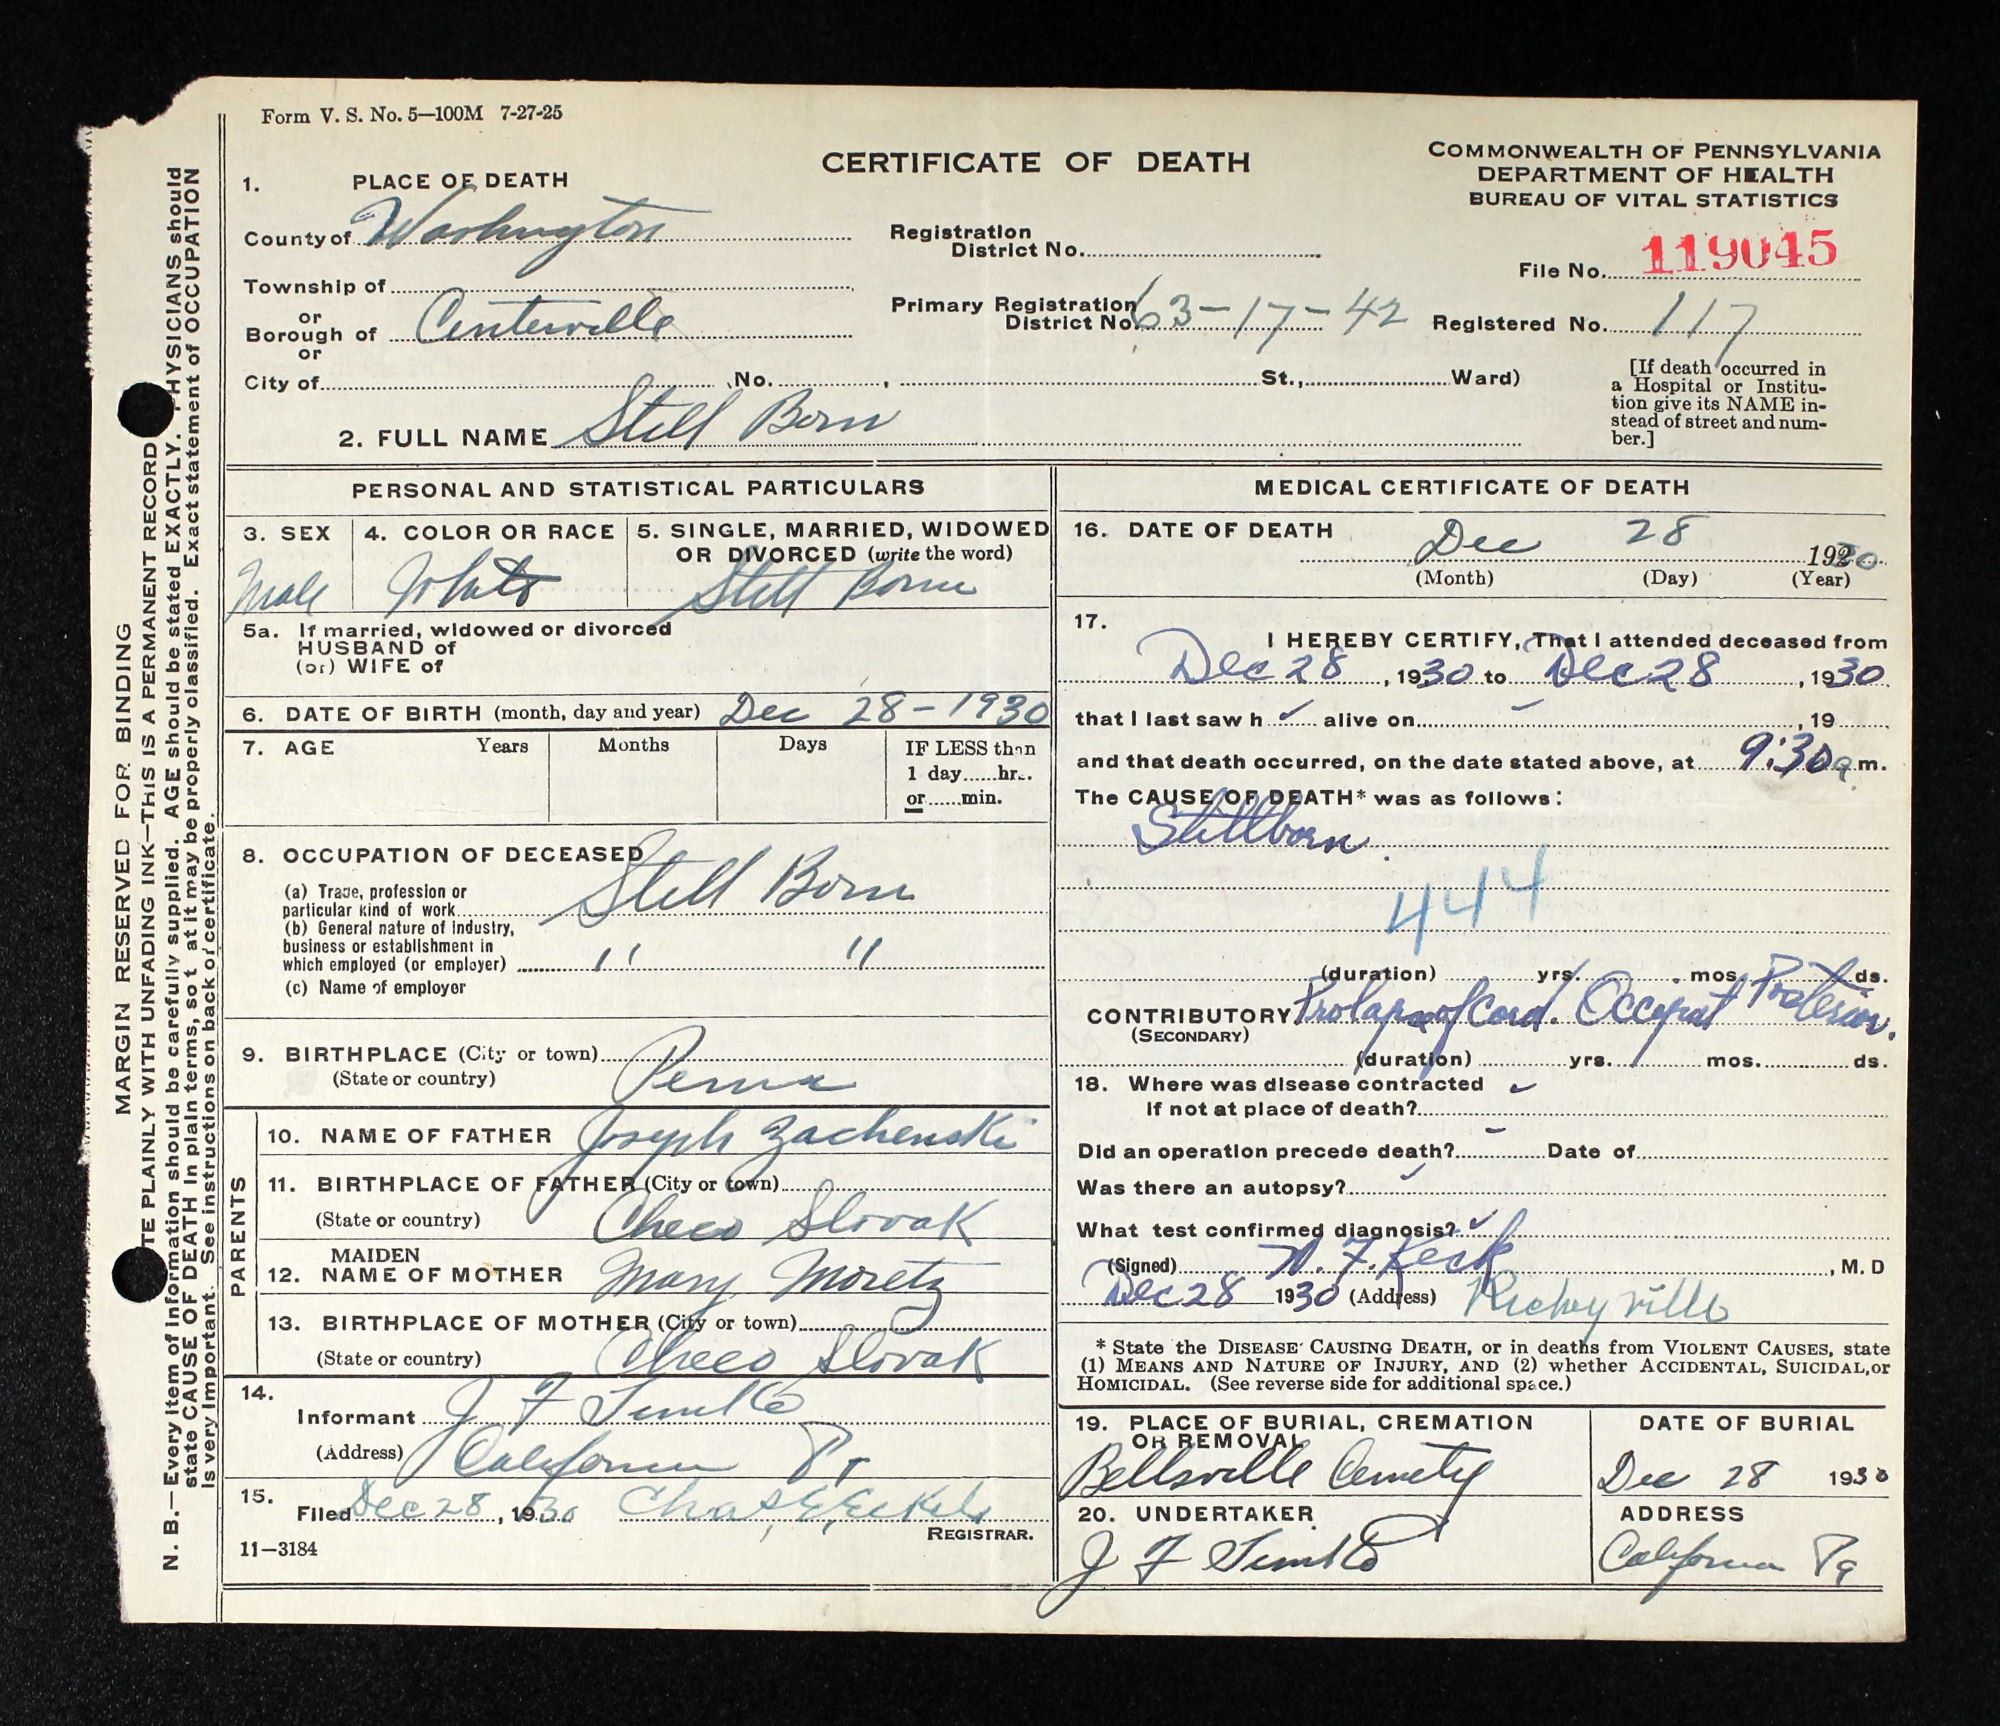 Form V. S. No. 5—100M 7-27-25
CERTIFICATE OF DEATH
COMMONWEALTH OF PENNSYLVANIA
DEPARTMENT OF HEALTH
BUREAU OF VITAL STATISTICS
1. PLACE OF DEATH
County of Washington
Registration
District No.
File No. 119045
Township of
or
Borough of Centerville
or
Primary Registration
District No. 63-17-42
Registered No. 117
City of , No. , St., Ward)
[If death occurred in
a Hospital or Institu-
tion give its NAME in-
stead of street and num-
ber.]
2. FULL NAME Still Born
PERSONAL AND STATISTICAL PARTICULARS
3. SEX
Male
4. COLOR OR RACE
White
5. SINGLE, MARRIED, WIDOWED
OR DIVORCED (write the word)
Still Born
5a. If married, widowed or divorced
HUSBAND of
(or) WIFE of
6. DATE OF BIRTH (month, day and year) Dec 28-1930
7. AGE Years Months Days
IF LESS than
1 day......hrs.
or......min.
8. OCCUPATION OF DECEASED
(a) Trade, profession or
particular kind of work Still Born
(b) General nature of Industry,
business or establishment in
which employed (or employer) " "
(c) Name of employer
9. BIRTHPLACE (City or town)
(State or country) Penna
PARENTS
10. NAME OF FATHER Joseph Zachenski
11. BIRTHPLACE OF FATHER (City or town)
(State or country) Checo Slovak
12. MAIDEN
NAME OF MOTHER Mary Moretz
13. BIRTHPLACE OF MOTHER (City or town)
(State or country) Checo Slovak
14.
Informant J F
(Address) California Pa
15.
Filed Dec 28, 1930 Chas. E. Eckels
REGISTRAR.
11—3184
MEDICAL CERTIFICATE OF DEATH
16. DATE OF DEATH
Dec 28 1930
(Month) (Day) (Year)
17.
I HEREBY CERTIFY, That I attended deceased from
Dec 28, 1930 to Dec 28, 1930
that I last saw h ✓ alive on - , 19
and that death occurred, on the date stated above, at 9:30 a.m.
The CAUSE OF DEATH* was as follows:
Stillborn.
444
(duration) yrs. mos. ds.
CONTRIBUTORY Prolapse of Cord. Occiput Posterior.
(SECONDARY)
(duration) yrs. mos. ds.
18. Where was disease contracted ✓
if not at place of death?
Did an operation precede death? - Date of
Was there an autopsy? ✓
What test confirmed diagnosis? ✓
(Signed) F. Keck, M. D
Dec 28 1930 (Address) Richeyville
* State the DISEASE CAUSING DEATH, or in deaths from VIOLENT CAUSES, state
(1) MEANS AND NATURE OF INJURY, AND (2) whether ACCIDENTAL, SUICIDAL, or
HOMICIDAL. (See reverse side for additional space.)
19. PLACE OF BURIAL, CREMATION
OR REMOVAL
Bellsville Cemetery
DATE OF BURIAL
Dec 28 1930
20. UNDERTAKER
J F
ADDRESS
California Pa
MARGIN RESERVED FOR BINDING
TE PLAINLY WITH UNFADING INK—THIS IS A PERMANENT RECORD
N. B.—Every item of information should be carefully supplied. AGE should be stated EXACTLY. PHYSICIANS should
state CAUSE OF DEATH in plain terms, so t at it may be properly classified. Exact statement of OCCUPATION
is very important. See instructions on back of certificate.